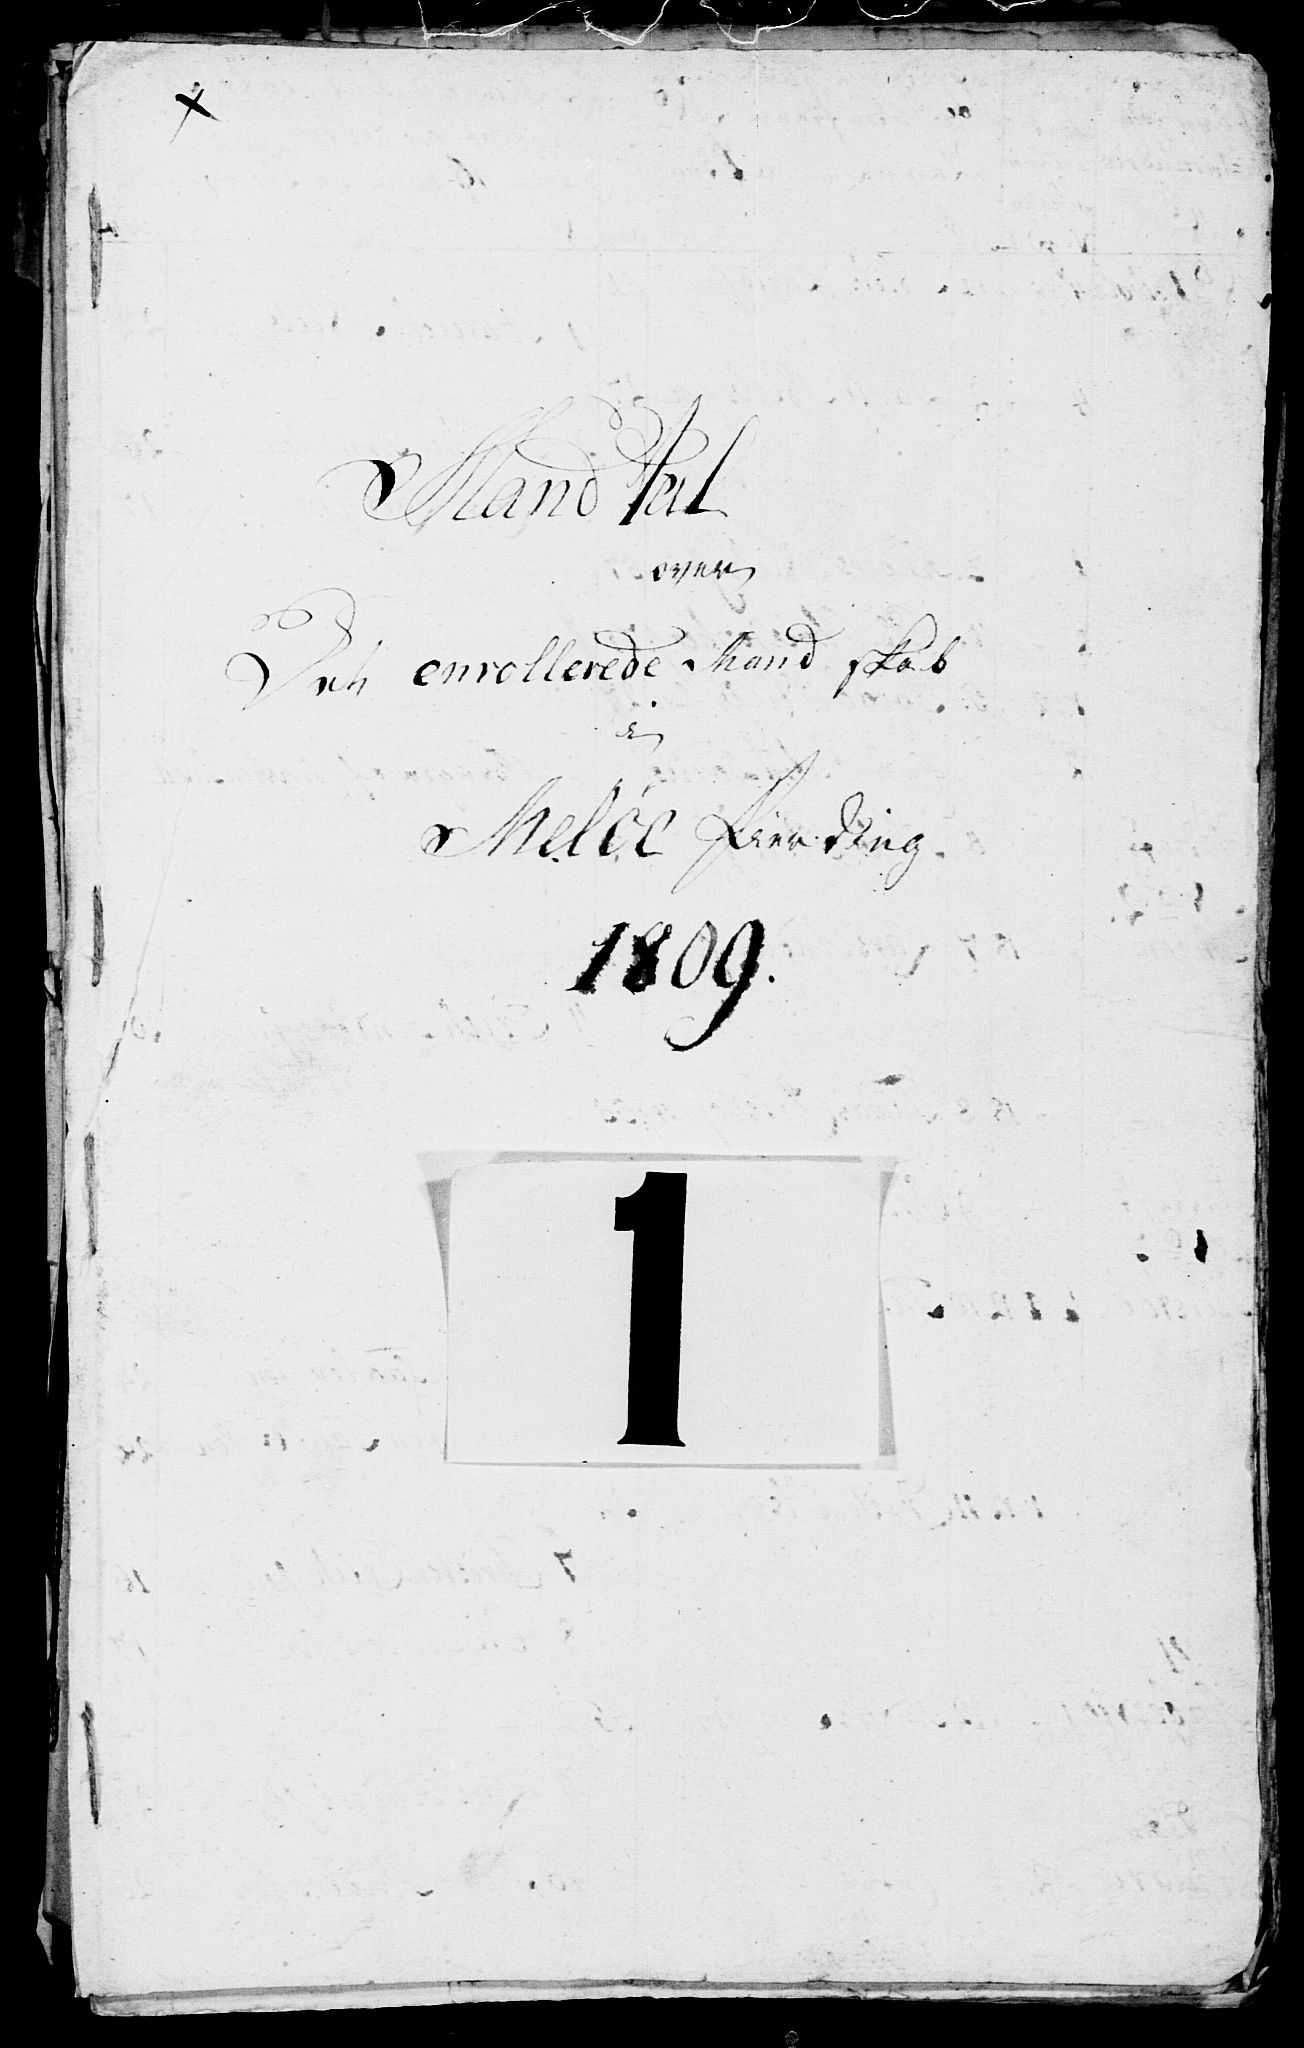 Mand Tal
over
Det enrollerede Mand skab
i
Meløe Fierding
1809.
1